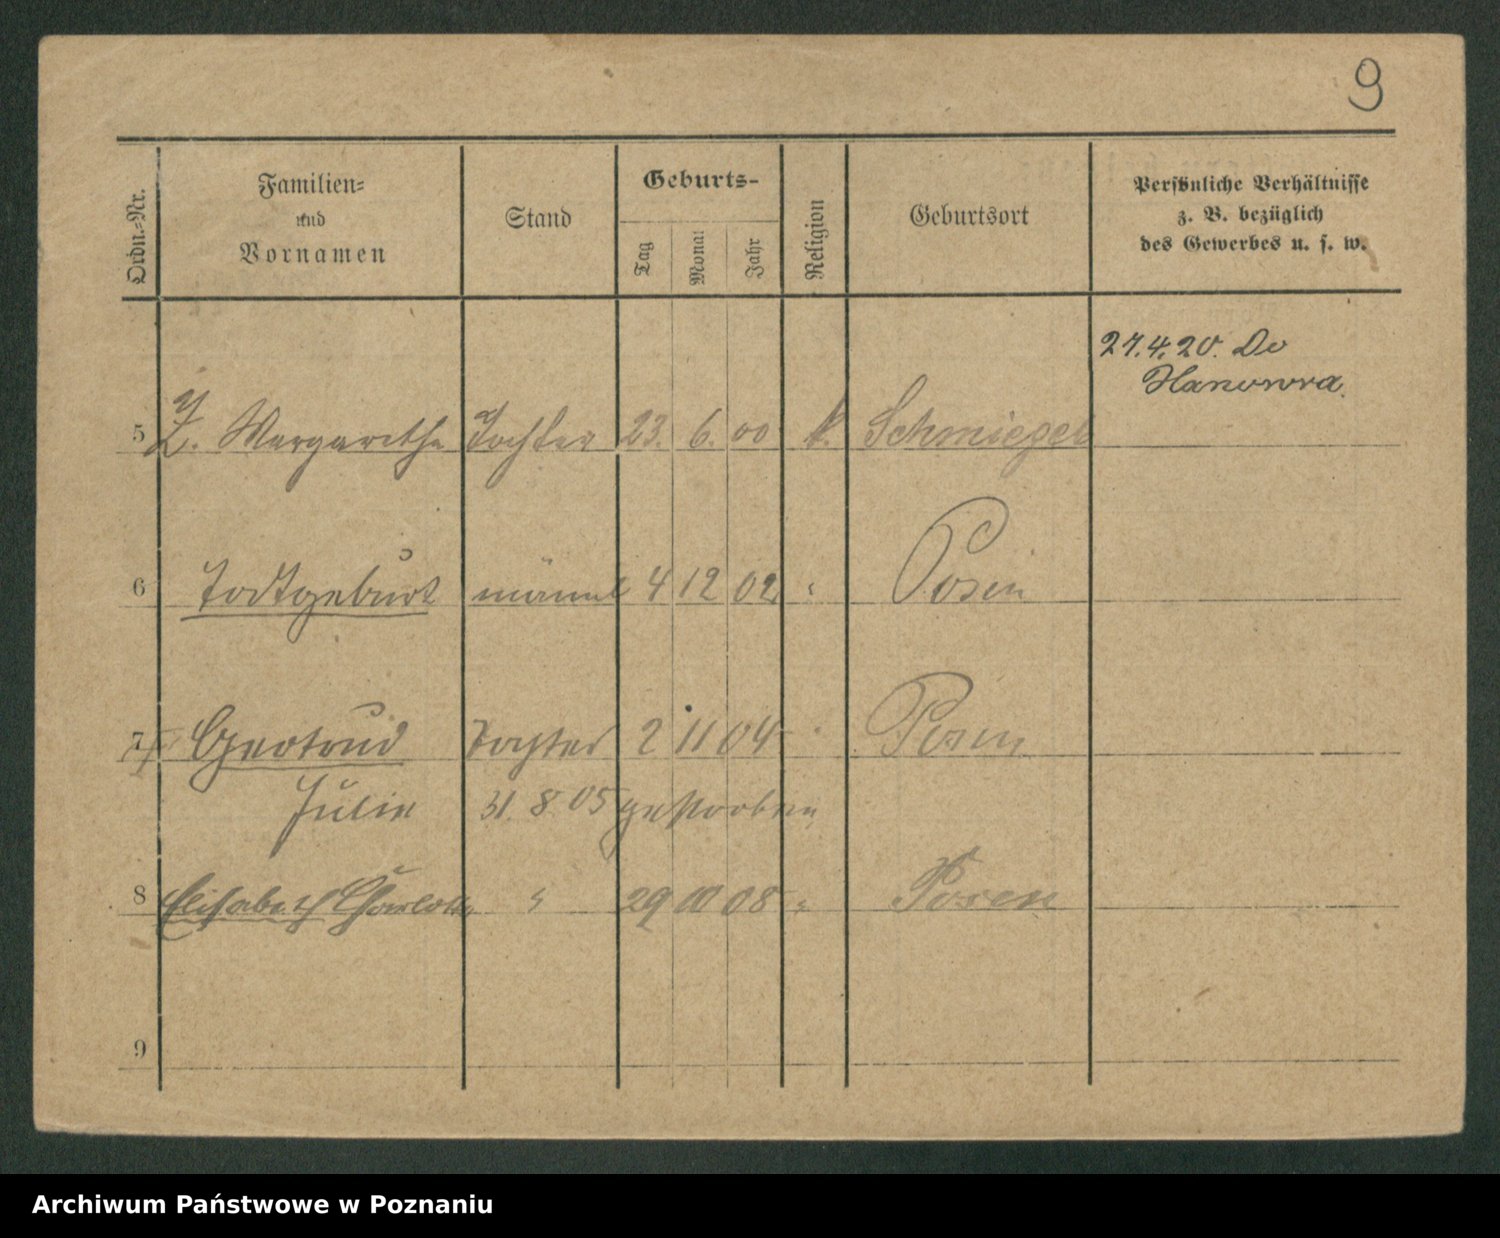 9
Ordn.-Nr.
Familien-
und
Vornamen
Stand
Geburts-
Tag
Monat
Jahr
Religion
Geburtsort
Persönliche Verhältnisse
z. B. bezüglich
des Gewerbes u. s. w.
27.4.20. Do
Hanowra.
5 Margarethe Tochter 23. 6. 00 k. Schmiegel
6 Todtgeburt männl 4 12 02 " Posen
7 Gertrud Tochter 2 11 04 " Posen
Julie 31. 8. 05 gestorben
8 Elisabeth Charlotte " 29 10 08 " Posen
9
Archiwum Państwowe w Poznaniu